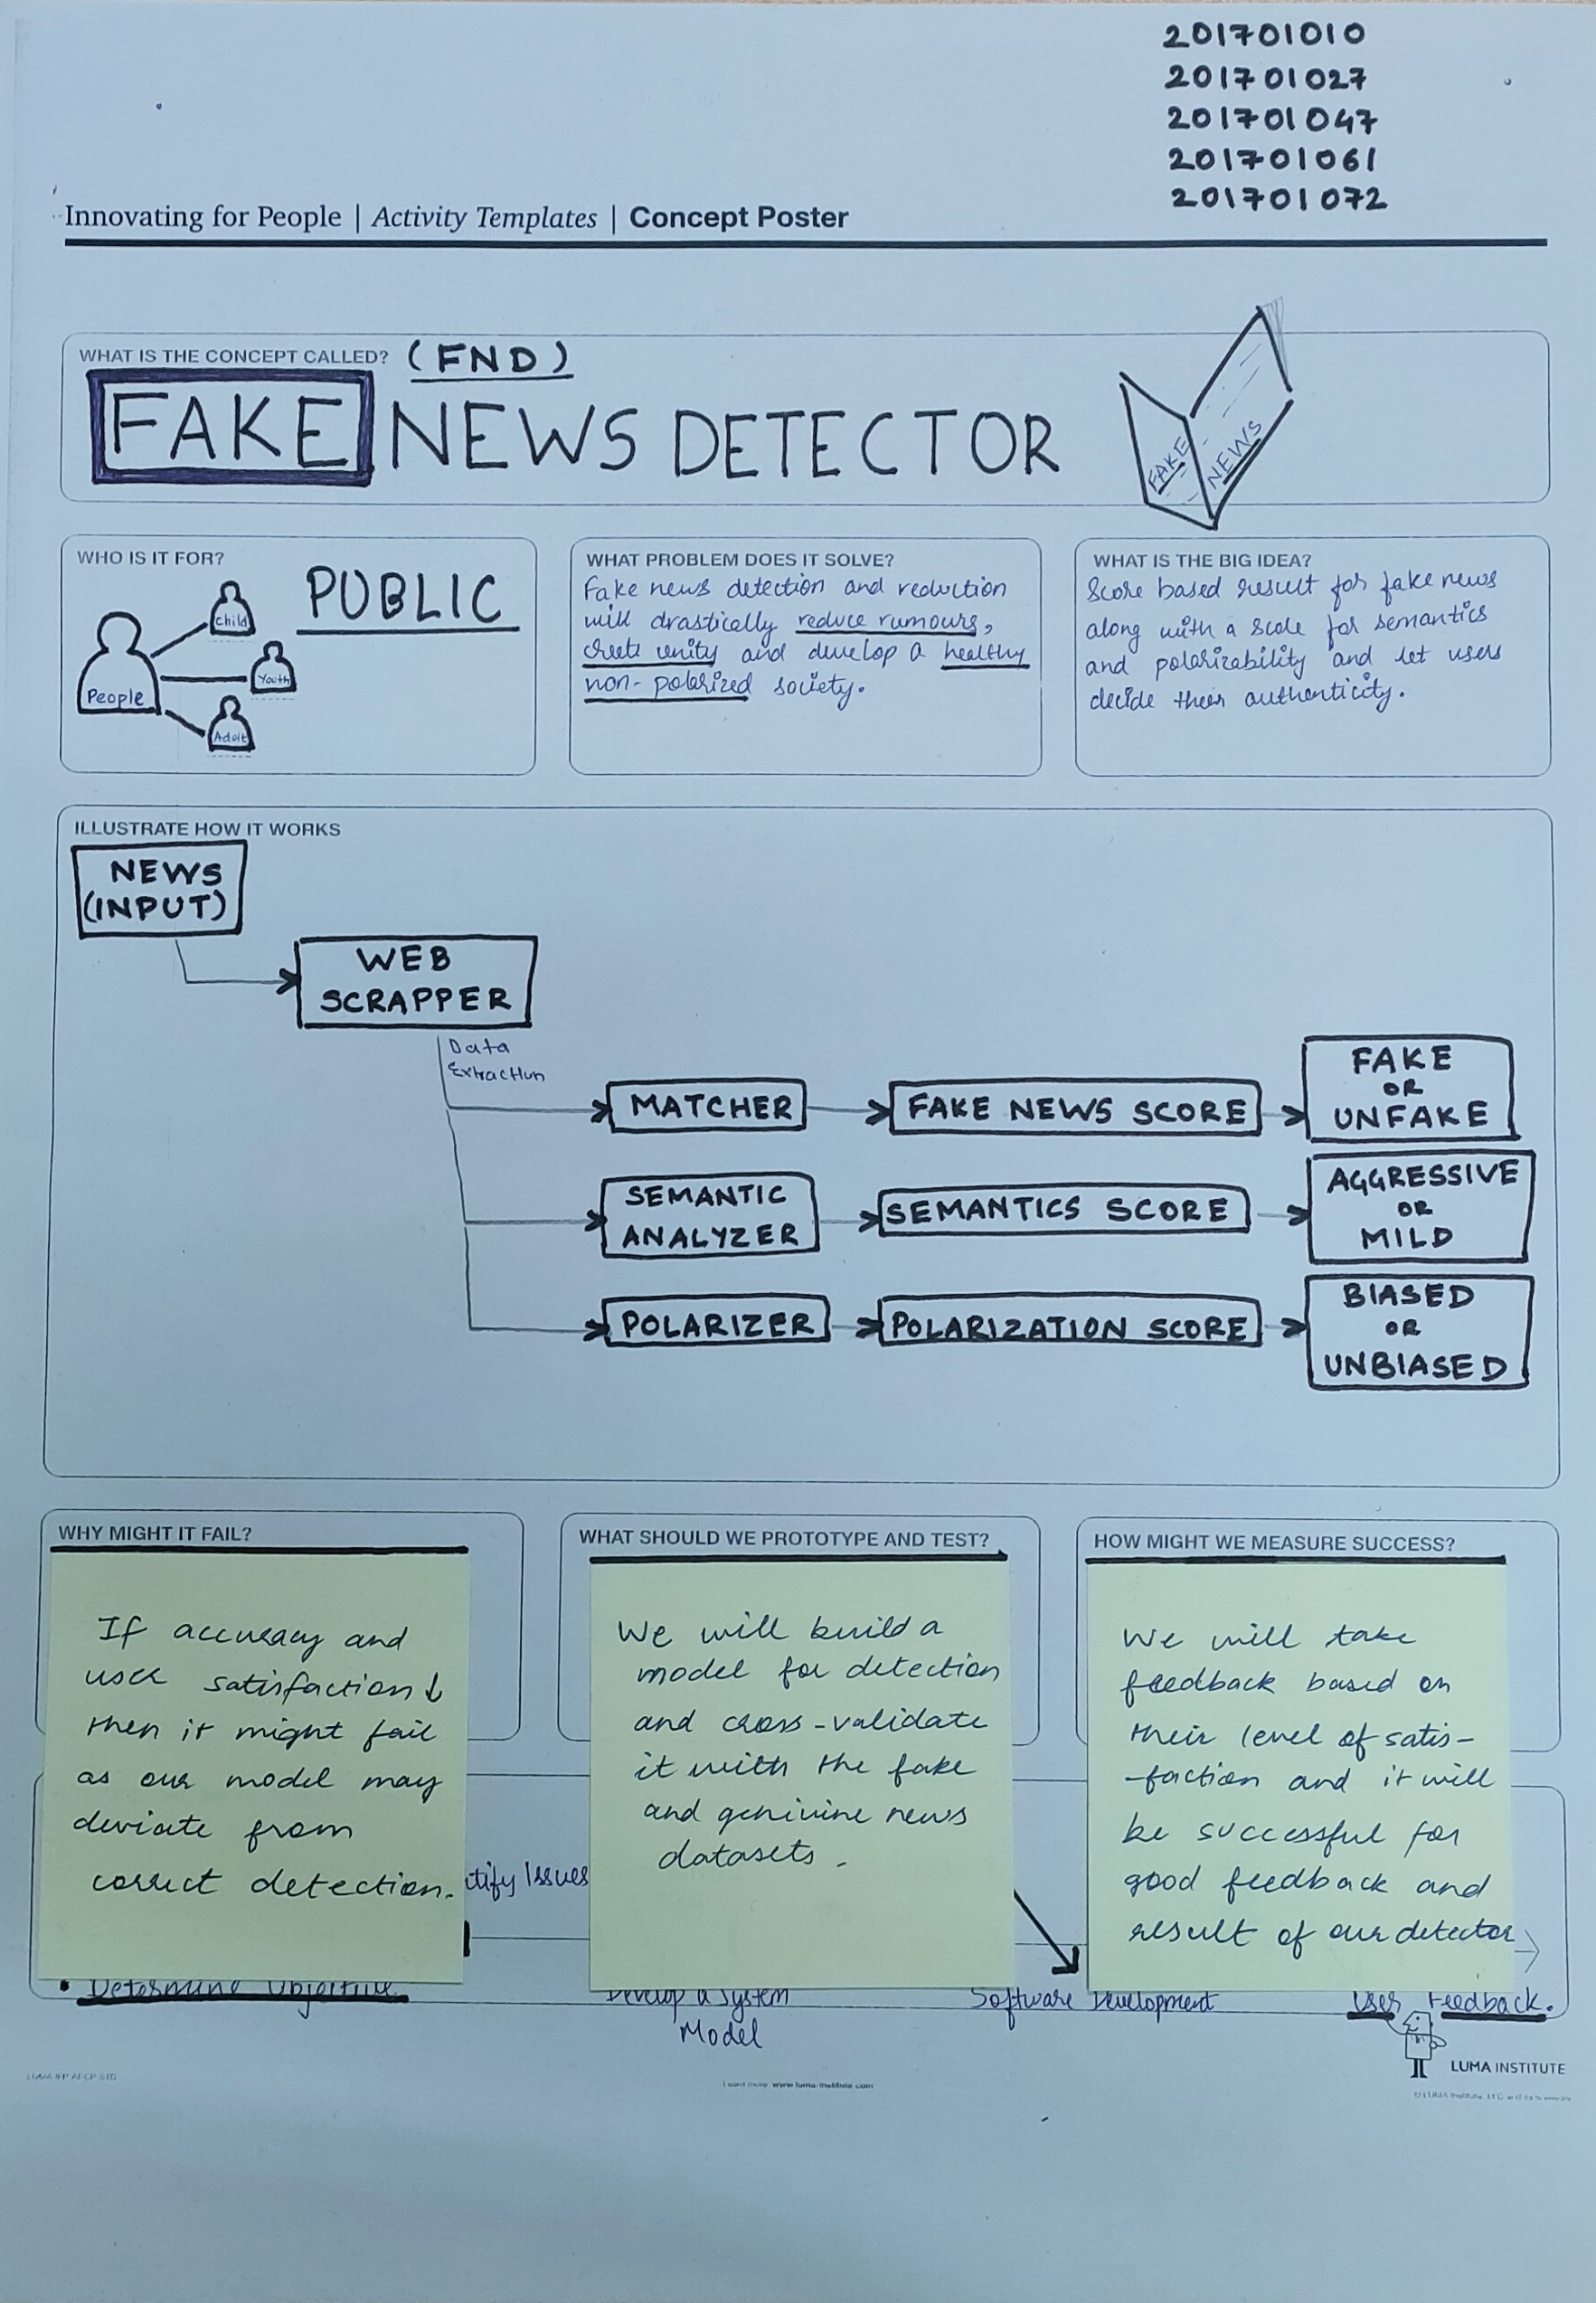 201701010
201701027
201701047
201701061
201701072
Innovating for People | Activity Templates | Concept Poster
WHAT IS THE CONCEPT CALLED? (FND)
FAKE NEWS DETECTOR
FAKE NEWS
WHO IS IT FOR?
PUBLIC
People
Child
Youth
Adult
WHAT PROBLEM DOES IT SOLVE?
Fake news detection and reduction
will drastically reduce rumours,
unity and develop a healthy
non-polarized society.
WHAT IS THE BIG IDEA?
Score based result for fake news
along with a scale for semantics
and polarizability and let users
decide their authenticity.
ILLUSTRATE HOW IT WORKS
NEWS
(INPUT)
WEB
SCRAPPER
Data
Extraction
MATCHER
FAKE NEWS SCORE
FAKE
OR
UNFAKE
SEMANTIC
ANALYZER
SEMANTICS SCORE
AGGRESSIVE
OR
MILD
POLARIZER
POLARIZATION SCORE
BIASED
OR
UNBIASED
WHY MIGHT IT FAIL?
If accuracy and
user satisfaction ↓
then it might fail
as our model may
deviate from
correct detection.
WHAT SHOULD WE PROTOTYPE AND TEST?
We will build a
model for detection
and cross-validate
it with the fake
and geniuine news
datasets.
HOW MIGHT WE MEASURE SUCCESS?
We will take
feedback based on
their level of satis-
-faction and it will
be successful for
good feedback and
result of our detector
tify Issues
• Determine Objective
Develop a System
Model
Software Development
User Feedback.
LUMA INSTITUTE
www.luma-institute.com